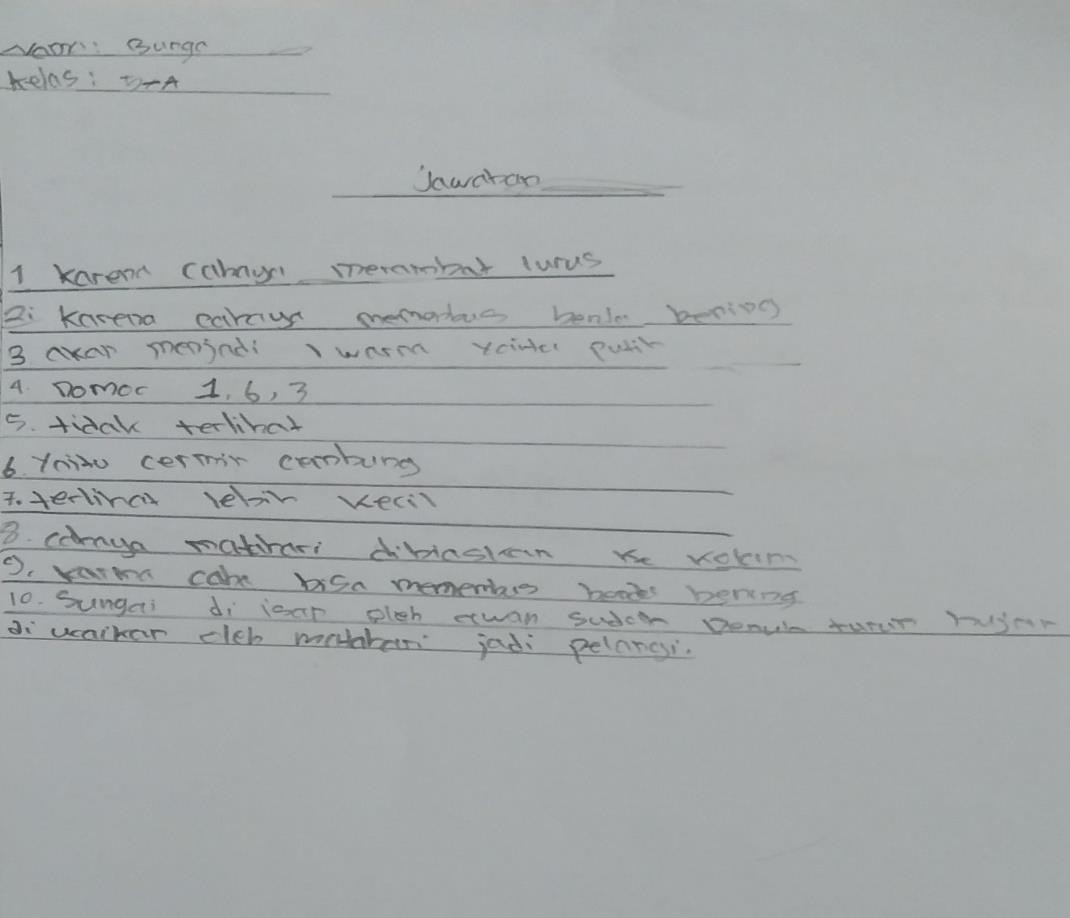 Nama: Bunga
Kelas: 5-A
Jawaban
1 Karena cahaya merambat lurus
2. Karena cahaya menembus benda bening
3. akan menjadi 1 warna yaitu putih
4. Nomor 1, 6, 3
5. tidak terlihat
6. Yaitu cermin cembung
7. terlihat lebih kecil
8. cahaya matahari dibiaskan ke kolam
9. karna caha bisa menembus benda bening
10. Sungai di isap oleh awan sudah penuh turun hujan
di uraikan oleh matahari jadi pelangi.